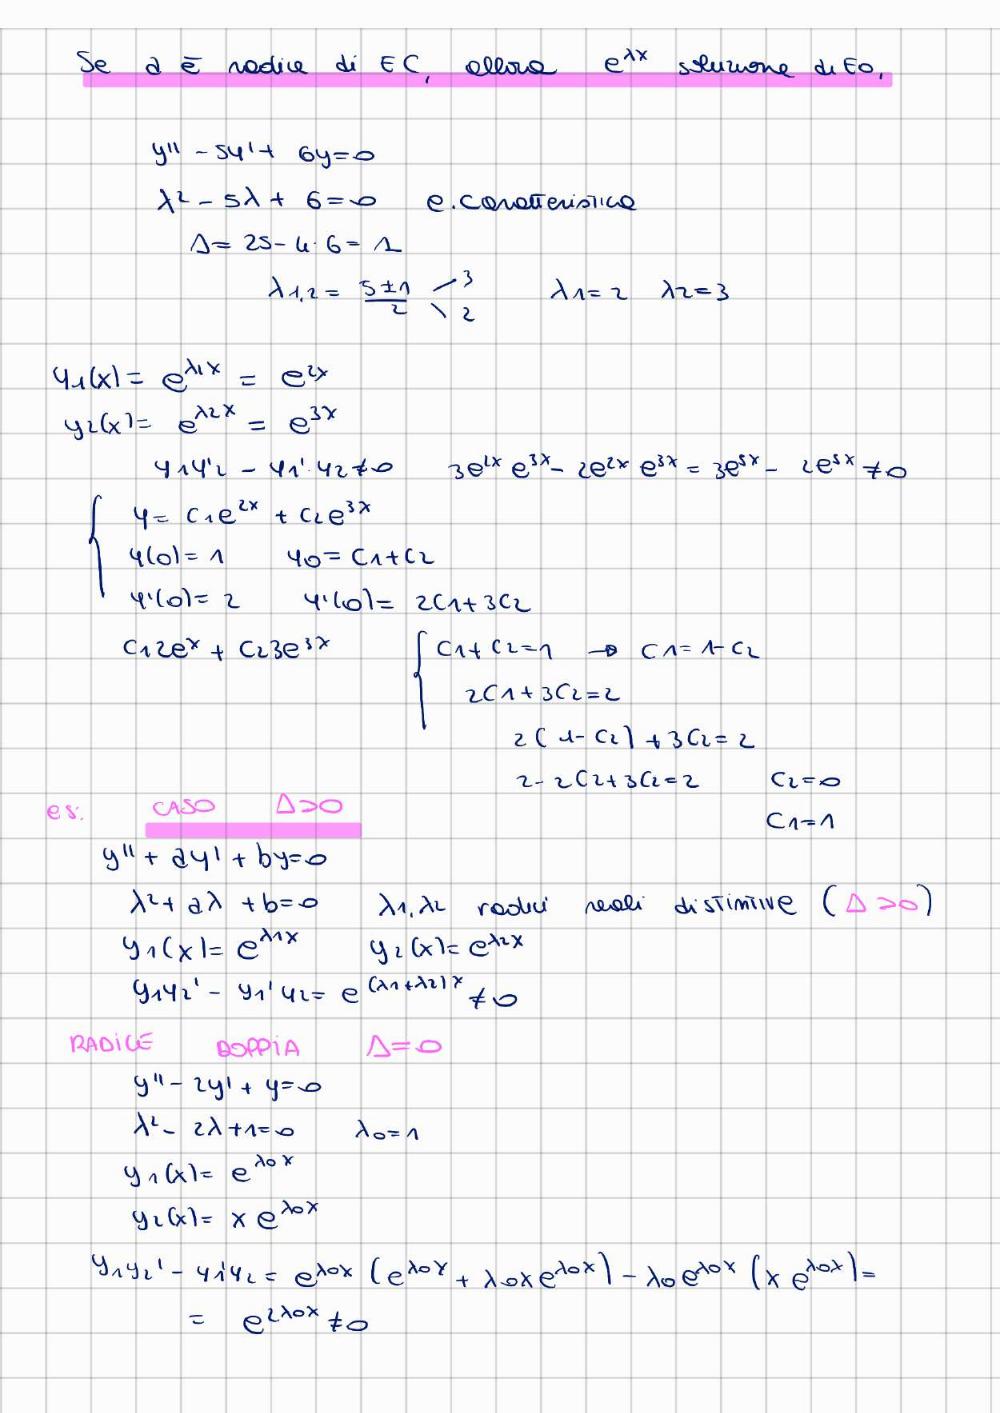 Se a è radice di EC, allora e^λx soluzione di EO,
y'' - 5y' + 6y = 0
λ² - 5λ + 6 = 0 e. caratteristica
Δ = 25 - 4·6 = 1
λ1,2 = (5±1)/2 3 2 λ1 = 2 λ2 = 3
y1(x) = e^λ1x = e^2x
y2(x) = e^λ2x = e^3x
y1y'2 - y1'·y2 ≠ 0 3e^2x e^3x - 2e^2x e^3x = 3e^5x - 2e^5x ≠ 0
{ y = c1e^2x + c2e^3x
y(0) = 1 y0 = c1 + c2
y'(0) = 2 y'(0) = 2c1 + 3c2
c12e^x + c23e^3x { c1 + c2 = 1 → c1 = 1 - c2
2c1 + 3c2 = 2
2(1 - c2) + 3c2 = 2
2 - 2c2 + 3c2 = 2 c2 = 0
c1 = 1
es: CASO Δ>0
y'' + ay' + by = 0
λ² + aλ + b = 0 λ1, λ2 radici reali distintive (Δ>0)
y1(x) = e^λ1x y2(x) = e^λ2x
y1y2' - y1'y2 = e^(λ1+λ2)x ≠ 0
RADICE DOPPIA Δ = 0
y'' - 2y' + y = 0
λ² - 2λ + 1 = 0 λ0 = 1
y1(x) = e^λ0x
y2(x) = x e^λ0x
y1y2' - y1'y2 = e^λ0x (e^λ0x + λ0xe^λ0x) - λ0e^λ0x (x e^λ0x) =
= e^2λ0x ≠ 0